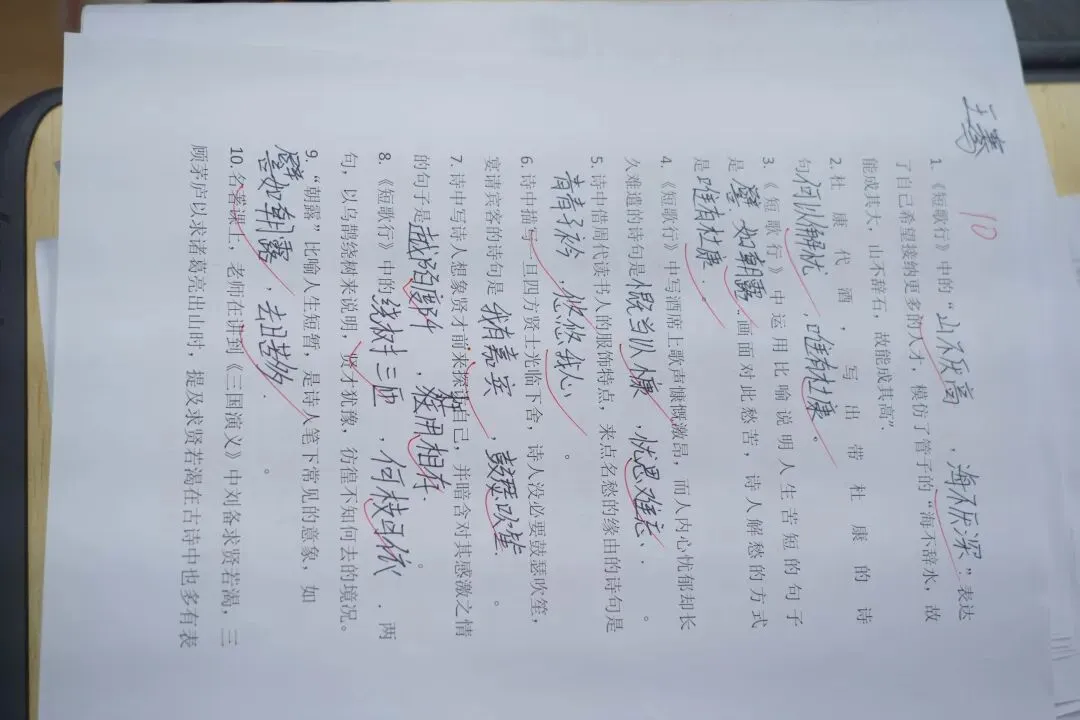 10
1. 《短歌行》中的“山不厌高，海不厌深”表达
了自己希望接纳更多的人才，模仿了管子的“海不辞水，故
能成其大，山不辞石，故能成其高”.
2. 杜康代酒，写出带杜康的诗
句何以解忧，唯有杜康。
3. 《短歌行》中运用比喻说明人生苦短的句子
是譬如朝露..画面对此愁苦，诗人解愁的方式
是唯有杜康.。
4. 《短歌行》中写酒席上歌声慷慨激昂，而人内心忧郁却长
久难遣的诗句是慨当以慷，忧思难忘、.。
5. 诗中借周代读书人的服饰特点，来点名愁的缘由的诗句是
青青子衿，悠悠我心。
6. 诗中描写一旦四方贤士光临下舍，诗人没必要鼓瑟吹笙，
宴请宾客的诗句是我有嘉宾，鼓瑟吹笙。
7. 诗中写诗人想象贤才前来探访自己，并暗含对其感激之情
的句子是越陌度阡，用相存。
8. 《短歌行》中的绕树三匝，何枝可依.两
句，以乌鹊绕树来说明，贤才犹豫，彷徨不知何去的境况。
9. “朝露”比喻人生短暂，是诗人笔下常见的意象，如
譬如朝露，去日苦多.。
10. 名著课上，老师在讲到《三国演义》中刘备求贤若渴，三
顾茅庐以求诸葛亮出山时，提及求贤若渴在古诗中也多有表